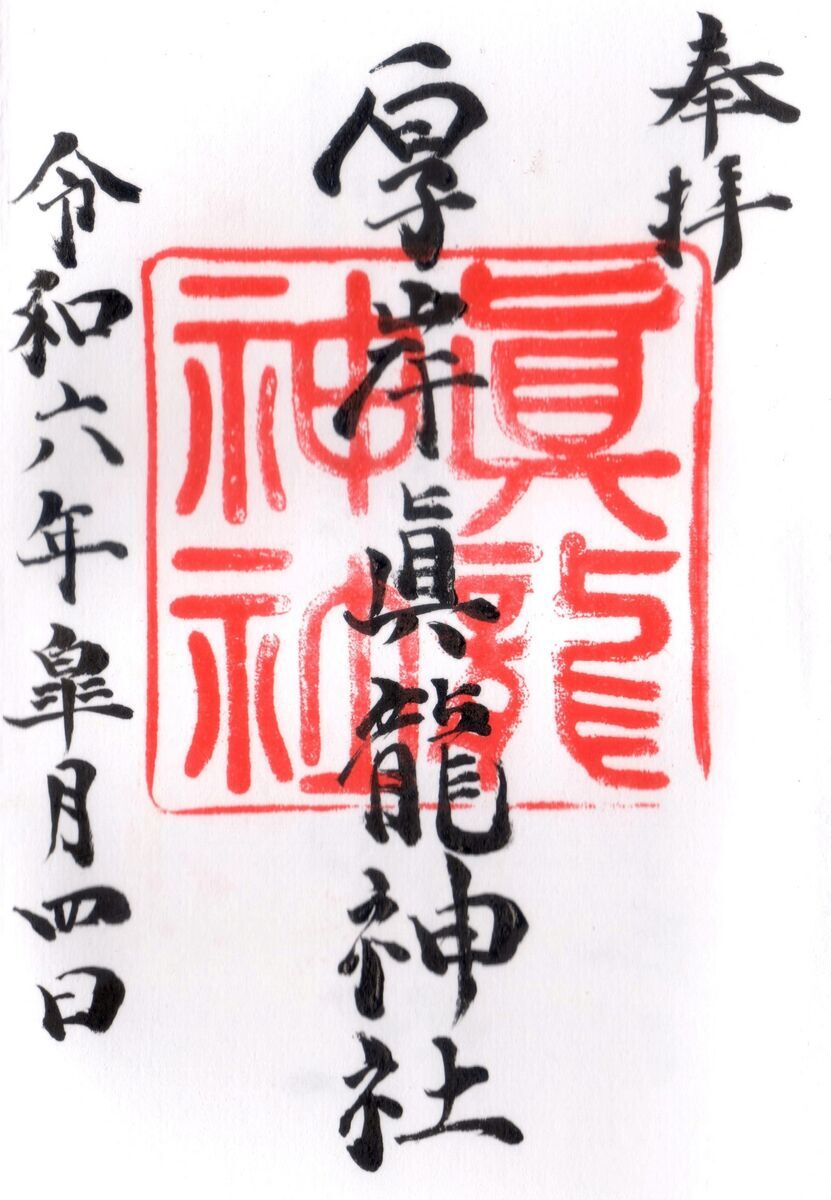 奉拝
厚岸眞龍神社
眞龍
神社
令和六年皐月四日